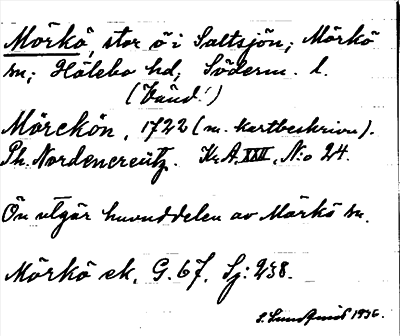 Mörkö, stor ö i Saltsjön; Mörkö
sn; Hölebo hd, Söderm. l.
(Vänd!)
Mörckön, 1722 (m. kartbeskrivn).
Ph. Nordencreütz. Kr A XXII, N:o 24.
Ön utgör huvuddelen av Mörkö sn.
Mörkö ek. G. 67. Sj: 238.
S. Lundquist 1936.